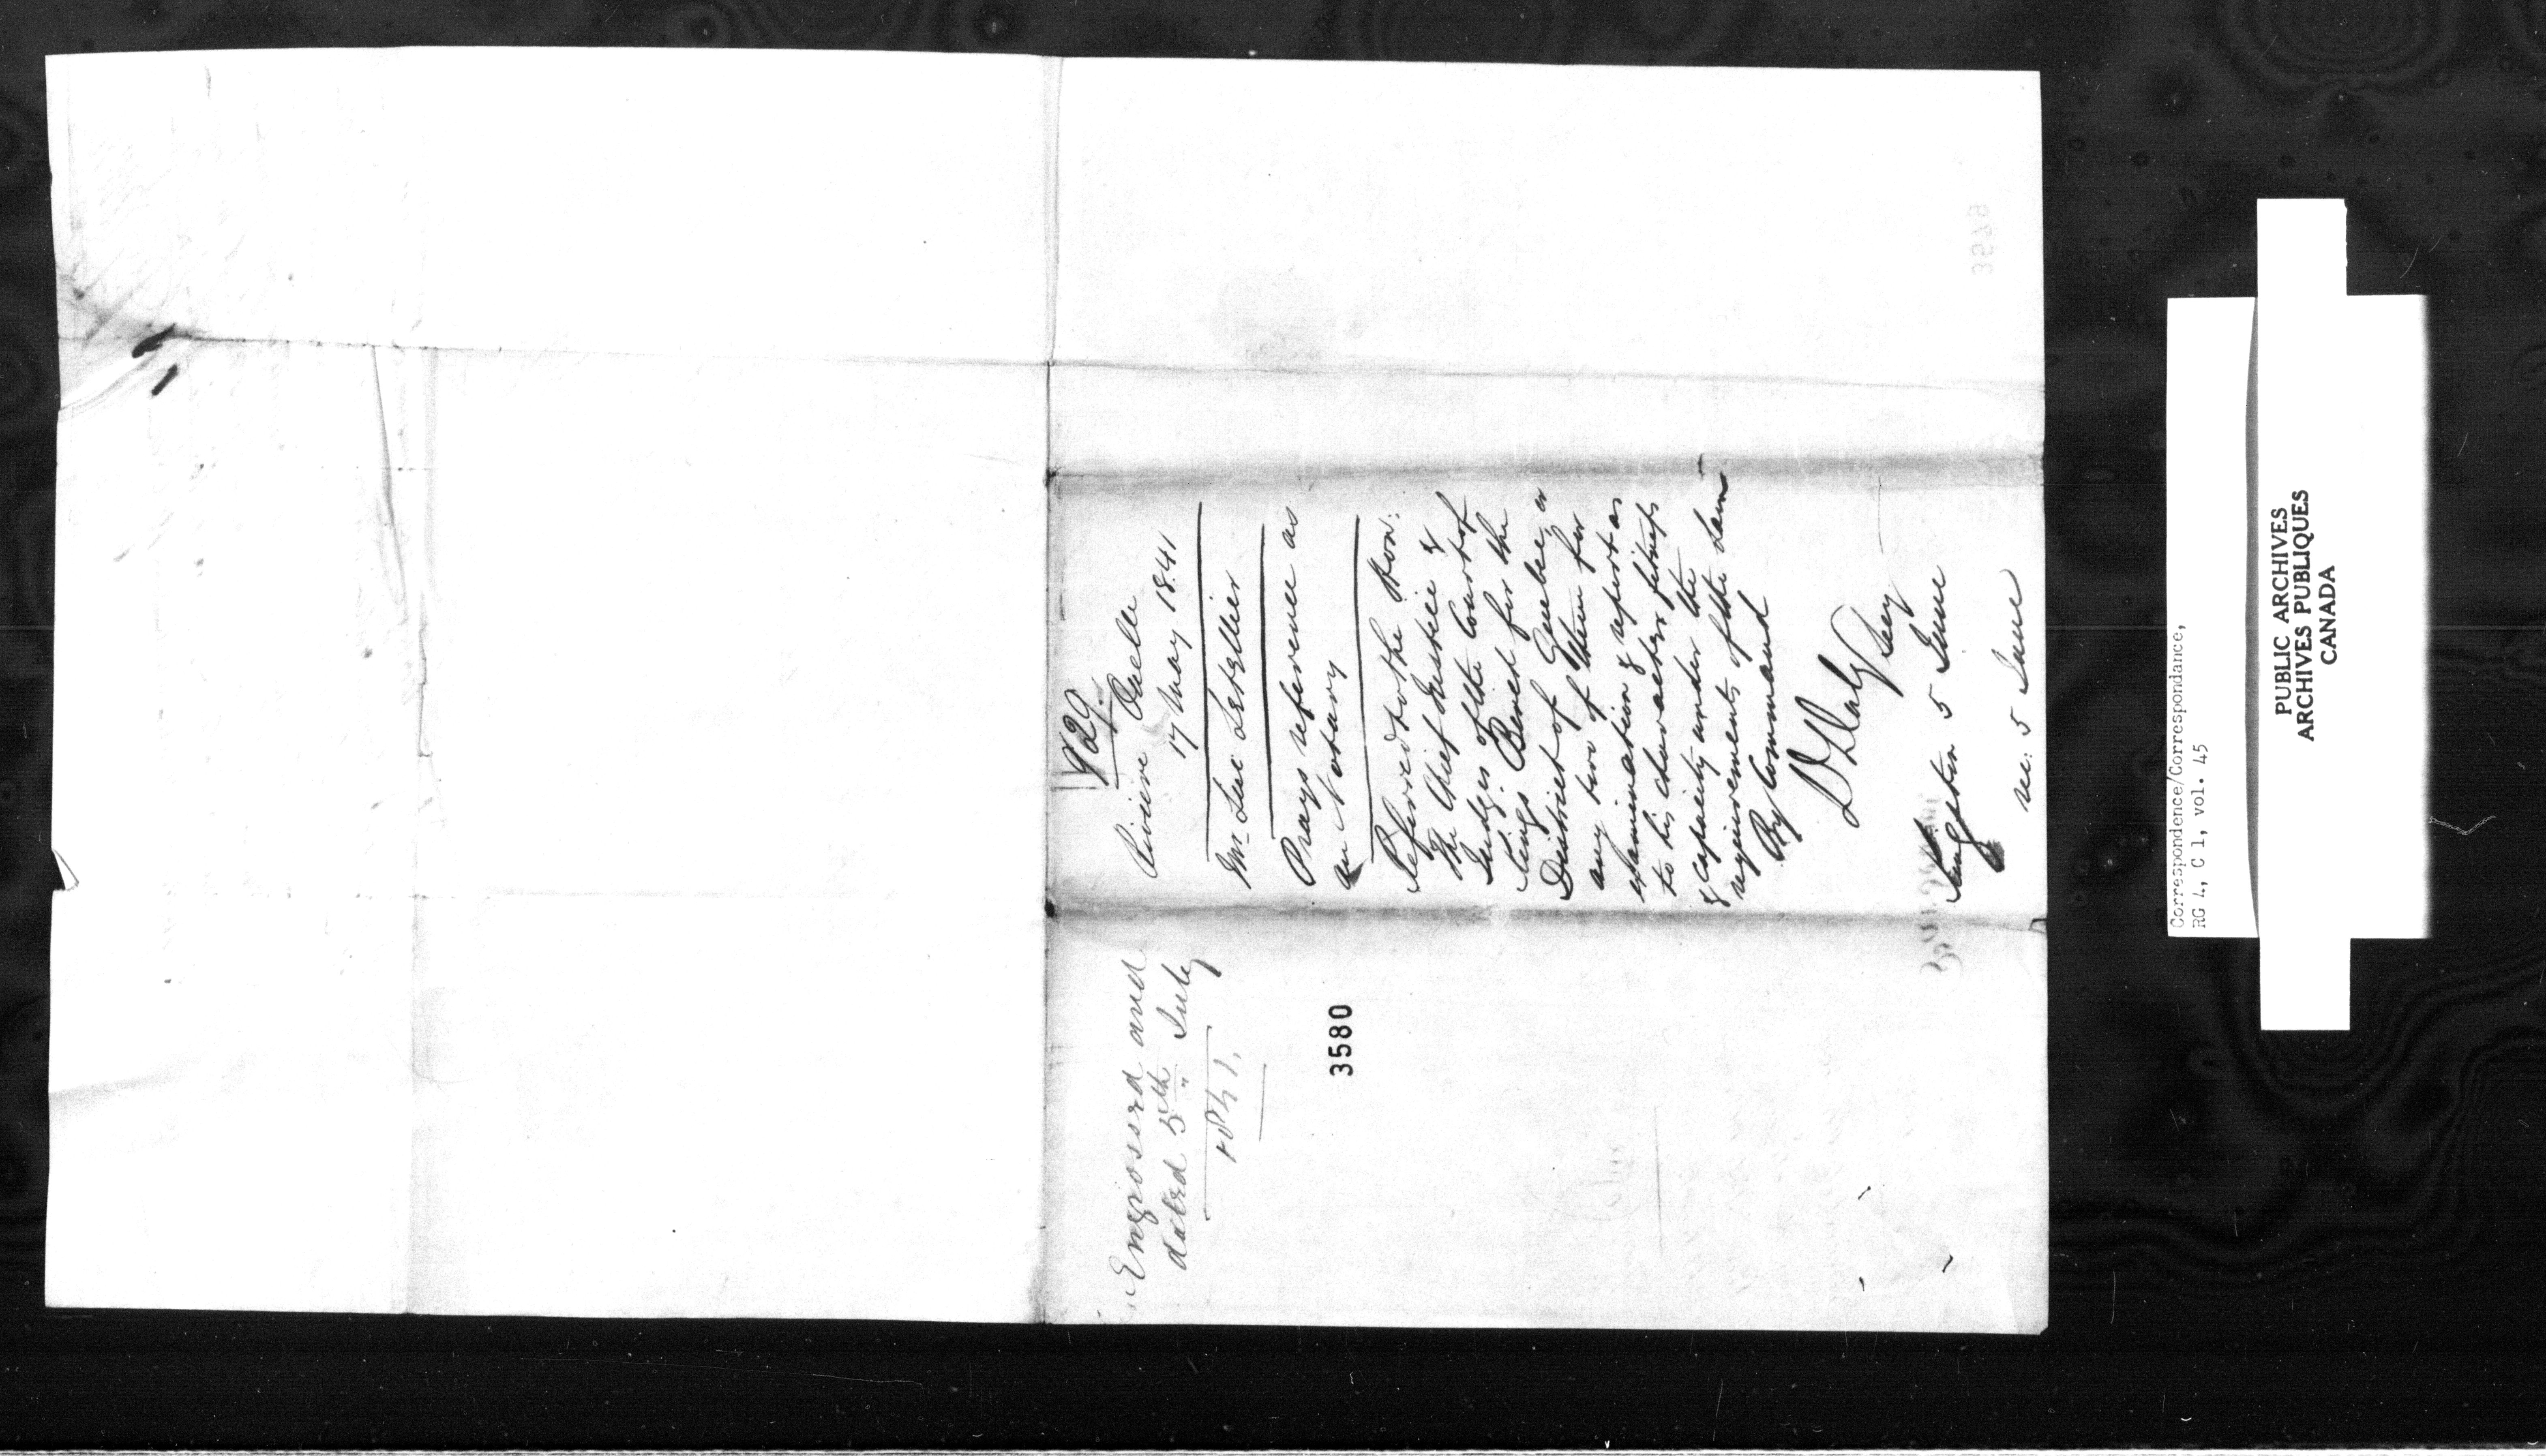 929.
Rivière Ouelle
17 May 1841
Mr Luc Letellier
Prays reference as
a Notary
Referred to the Hon:
the Chief Justice &
Judges of the Court of
Kings Bench for the
District of Quebec, or
any two of them for
examination & report as
to his character fitness
& capacity under the
requirements of the Law
By Command
D Daly
Secy
Kingston 5 June
rec: 5 June
Engrossed and
dated 5th July
1841.
3580
3579
Correspondence/Correspondance,
RG 4, C 1, vol. 45
PUBLIC ARCHIVES
ARCHIVES PUBLIQUES
CANADA